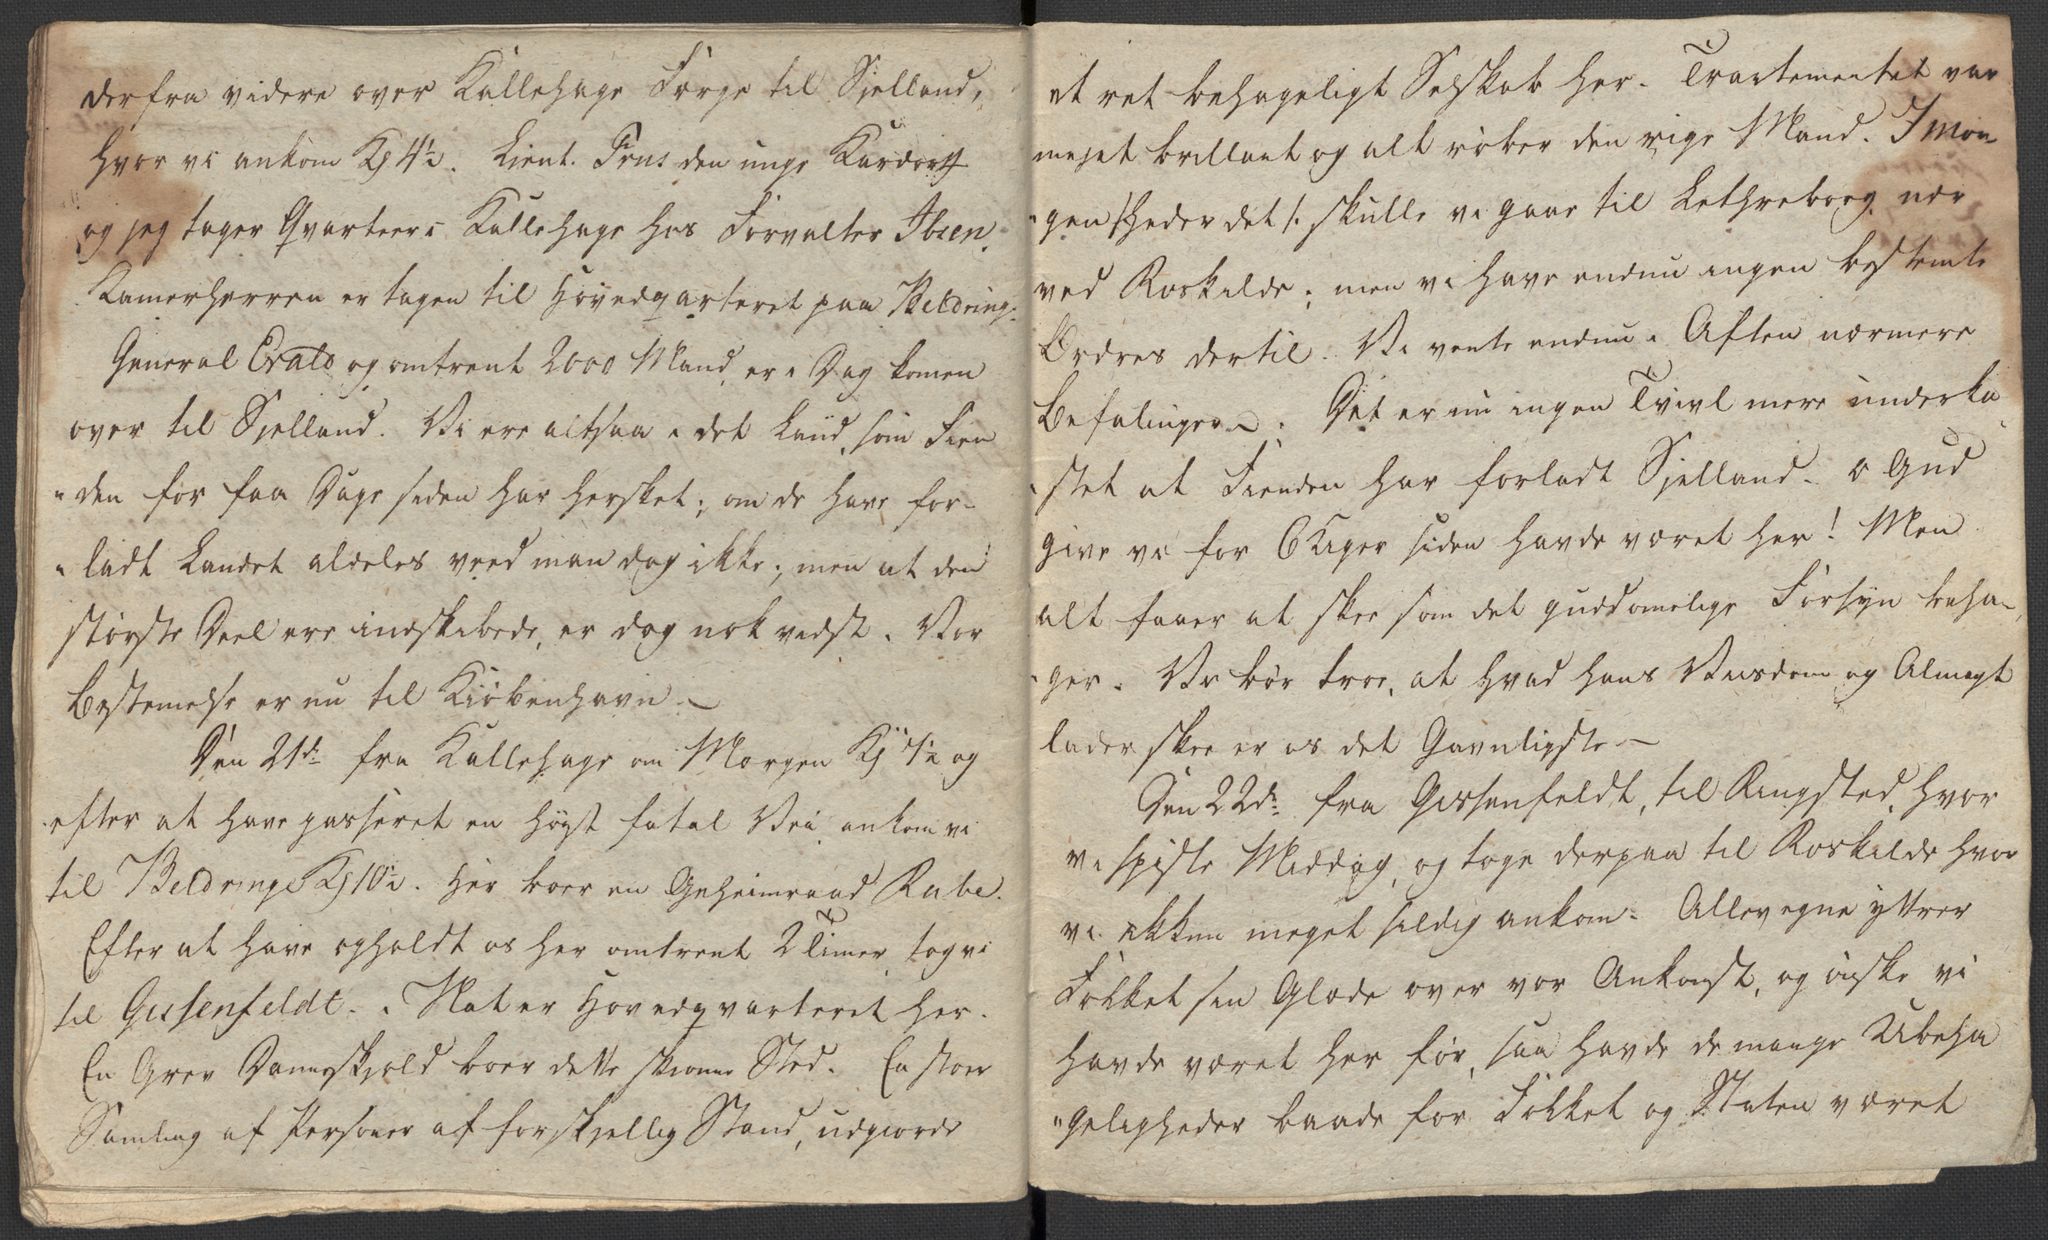 derfra videre over Kallehage Færge til Sjelland,
hvor vi ankom Kl 4½. Lieut. Frus den unge Kardorff
og jeg tager Qvarteer i Kallehage hos Forvalter Ibsen.
Kamerherren er tagen til Hovedqvarteret paa Beldringe.
General Crato og omtrent 2000 Mand, er i Dag komen
over til Sjelland. Vi ere altsaa i det Land, som Fien
"den for faa Dage siden har hersket; om de have for-
"ladt Landet aldeles veed man dog ikke; men at den
største Deel ere indskibede, er dog nok vidst. Vor
Bestemelse er nu til Kiöbenhavn.—
Den 21de fra Kallehage om Morgen Kl ½ og
efter at have passeret en høyst fatal Vei ankom vi
til Beldringe Kl 10½. Her boer en Geheimraad Rabe.
Efter at have opholdt os her omtrent 2 Timer, tog vi
til Gissenfeldt. I Nat er Hovedqvarteret her.
En Grev Danneskjold boer dette skiönne Sted. En stoer
Samling af Personer af forskjellig Stand, udgiorde
et ret behageligt Selskab her. Tractementet var
meget brillant og alt röber den rige Mand. I mor-
"gen /: heder det :/ skulle vi gaae til Lethreborg nær
ved Roskilde; men vi have endnu ingen bestemte
Ordres dertil. Vi vente endnu i Aften nærmere
Befalinger.— Det er nu ingen Tvivl mere underka
"stet at Fienden har forladt Sjelland. O Gud
give vi for 6 Uger siden havde været her! Men
alt faaer at skee som det guddomelige Forsyn beha-
"ger. Vi bør troe, at hvad hans Viisdom og Almagt
lader skee er os det Gavnligste—
Den 22de fra Gissenfeldt, til Ringsted, hvor
vi spiste Middag, og toge derpaa til Roskilde hvor
vi ikkun meget sildig ankom. Allevegne yttrer
Folket sin Glæde over vor Ankomst, og önske vi
havde været her før, saa havde de mange Ubeha
"geligheder baade for Folket og Staten været